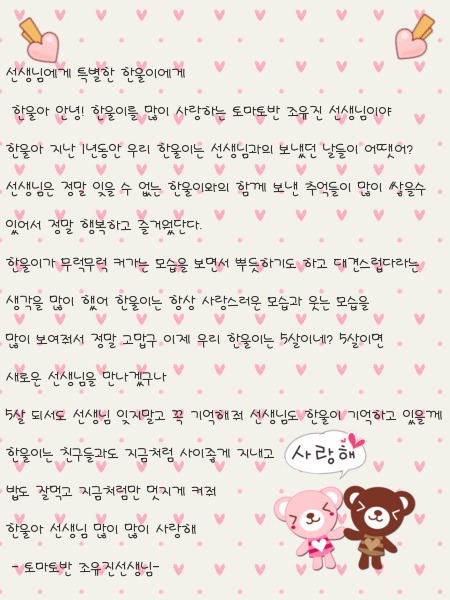 선생님에게 특별한 한율이에게
한율아 안녕! 한율이를 많이 사랑하는 토마토반 조유진 선생님이야
한율아 지난 1년동안 우리 한율이는 선생님과의 보냈던 날들이 어땟어?
선생님은 정말 잊을 수 없는 한율이와의 함께 보낸 추억들이 많이 쌓을수
있어서 정말 행복하고 즐거웠단다.
한율이가 무럭무럭 커가는 모습을 보면서 뿌듯하기도 하고 대견스럽다라는
생각을 많이 했어 한율이는 항상 사랑스러운 모습과 웃는 모습을
많이 보여줘서 정말 고맙구 이제 우리 한율이는 5살이네? 5살이면
새로운 선생님을 만나겠구나
5살 되서도 선생님 잊지말고 꼭 기억해줘 선생님도 한율이 기억하고 있을께
한율이는 친구들과도 지금처럼 사이좋게 지내고
사랑해
밥도 잘먹고 지금처럼만 멋지게 커줘
한율아 선생님 많이 많이 사랑해
- 토마토반 조유진선생님-